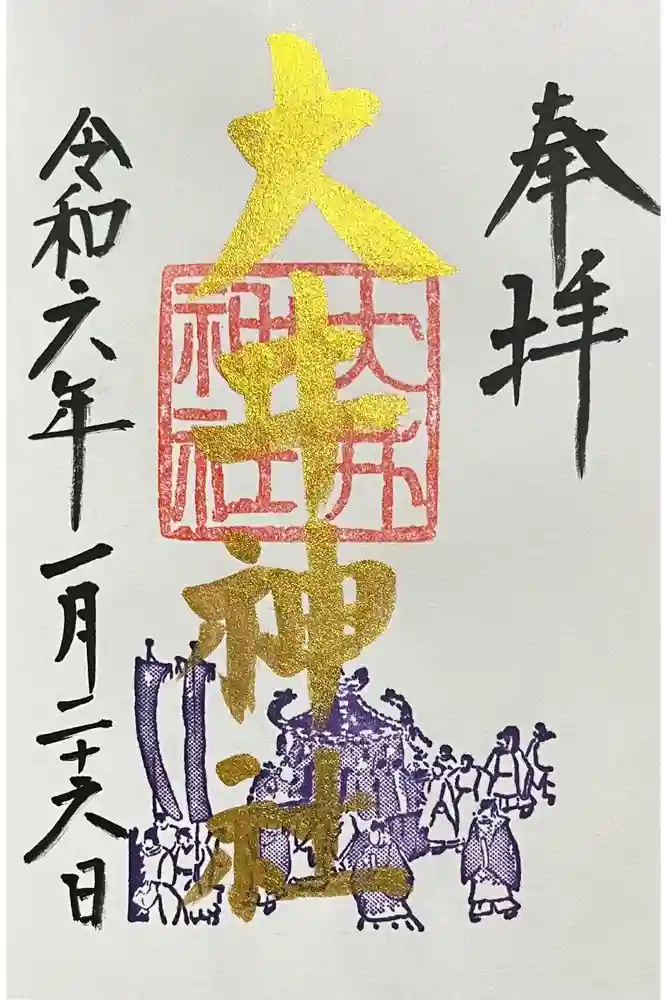 奉拝
大井神社
大井
神社
令和六年一月二十八日